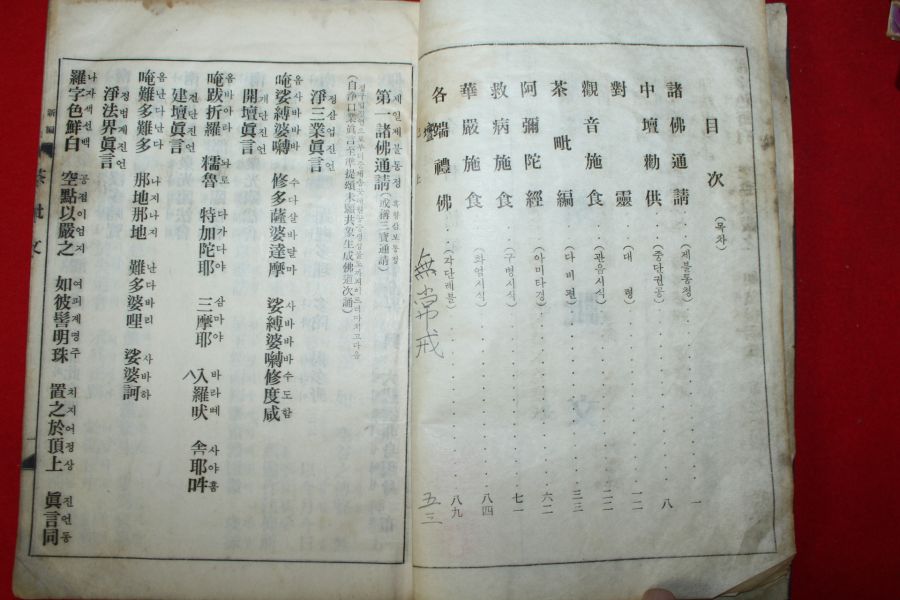 目次 (목차)
諸佛通請 (제불통청) 一
中壇勸供 (중단권공) 八
對靈 (대령) 一二
觀音施食 (관음시식) 二二
茶毗編 (다비편) 三三
阿彌陀經 (아미타경) 六二
救病施食 (구병시식) 七一
華嚴施食 (화엄시식) 八四
各端禮佛 (각단례불) 八九
無常戒 五三
第一諸佛通請 (或稱三寶通請)
(自淨口業眞言至準提頌末願共衆生成佛道次誦)
淨三業眞言 정삼업진언
唵娑縛婆嚩 修多薩婆達摩 娑縛婆嚩修度咸
옴사바바바 수다살바달마 사바바바수도함
開壇眞言 개단진언
唵跋折羅 糯魯 特加陀耶 三摩耶 入羅吠 舍耶吽
옴바아라 놔로 다가다야 삼마야 바라베 사야훔
建壇眞言 건단진언
唵難多難多 那地那地 難多婆哩 娑婆訶
옴난다난다 나지나지 난다바리 사바하
淨法界眞言 정법계진언
羅字色鮮白 空點以嚴之 如彼髻明珠 置之於頂上 眞言同
나자색선백 공점이엄지 여피계명주 치지어정상 진언동
新編
茶毗文